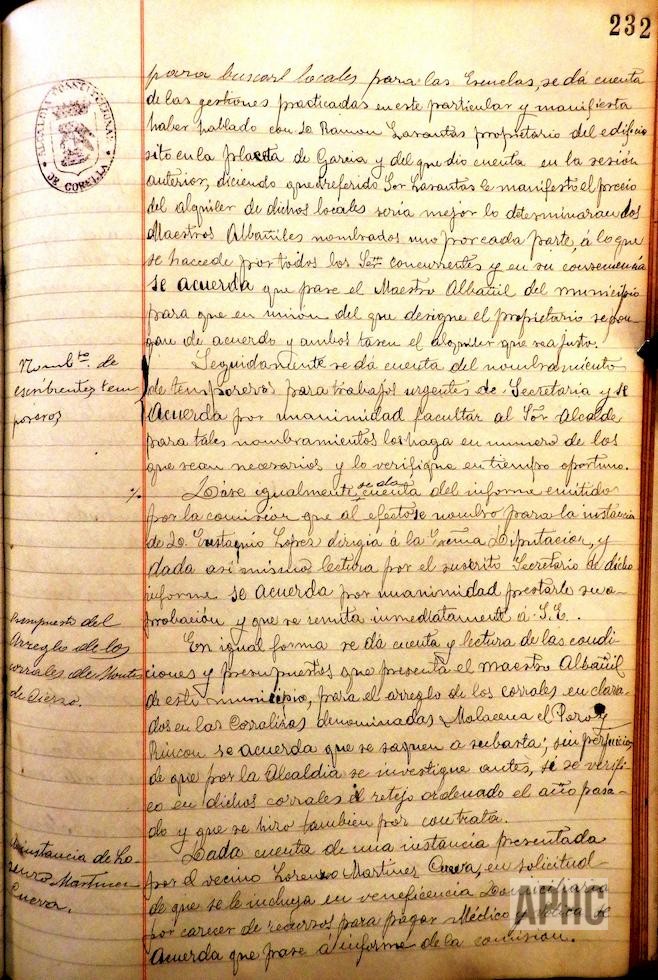 232
ALCALDIA CONSTITUCIONAL
DE CORELLA
para buscar locales para las Escuelas, se dá cuenta
de las gestiones practicadas en este particular y manifiesta
haber hablado con Dn Ramon propietario del edificio
sito en la placeta de Garcia y del que dio cuenta en la sesión
anterior, diciendo que el referido Sor le manifestó el precio
del alquiler de dichos locales seria mejor lo determinaran dos
Maestros Albañiles nombrados uno por cada parte, á lo que
se haccede por todos los Sres concurrentes y en su consecuencia
se acuerda que pase el Maestro Albañil del municipio
para que en union del que designe el propietario se pon-
gan de acuerdo y ambos tasen el alquiler que sea justo.
Nombto. de
escribientes tem
poreros
Seguidamente se dá cuenta del nombramiento
de temporeros para trabajos urgentes de Secretaria y se
acuerda por unanimidad facultar al Sor Alcalde
para tales nombramientos los haga en numero de los
que sean necesarios y lo verifique en tiempo oportuno.
Dáse igualmente se da cuenta del informe emitido
por la comisión que al efecto se nombro para la instancia
de Dn Eustaquio López dirigia á la Excma Diputacion, y
dada asi mismo lectura por el suscrito Secretario de dicho
informe se acuerda por unanimidad prestarle su a-
probación y que se remita inmediatamente á S.E.
Presupuesto del
Arreglo de los
corrales de Montes
de Cierzo.
En igual forma se dá cuenta y lectura de las condi-
ciones y presupuestos que presenta el maestro Albañil
de este municipio, para el arreglo de los corrales en clava-
dos en las Corralizas denominadas el y
Rincon se acuerda que se saquen a subasta; sin perjuicio
de que por la Alcaldia se investigue antes, si se verifi-
co en dichos corrales el retejo ordenado el año pasa-
do y que se hizo tambien por contrata.
Instancia de Lo-
renzo Martinez
Cueva.
Dada cuenta de una instancia presentada
por el vecino Lorenzo Martinez Cueva, en solicitud
de que se le incluya en veneficencia Domiciliaria
por carecer de recursos para pagar Médico y botica se
Acuerda que pase á informe de la comision.
APHC